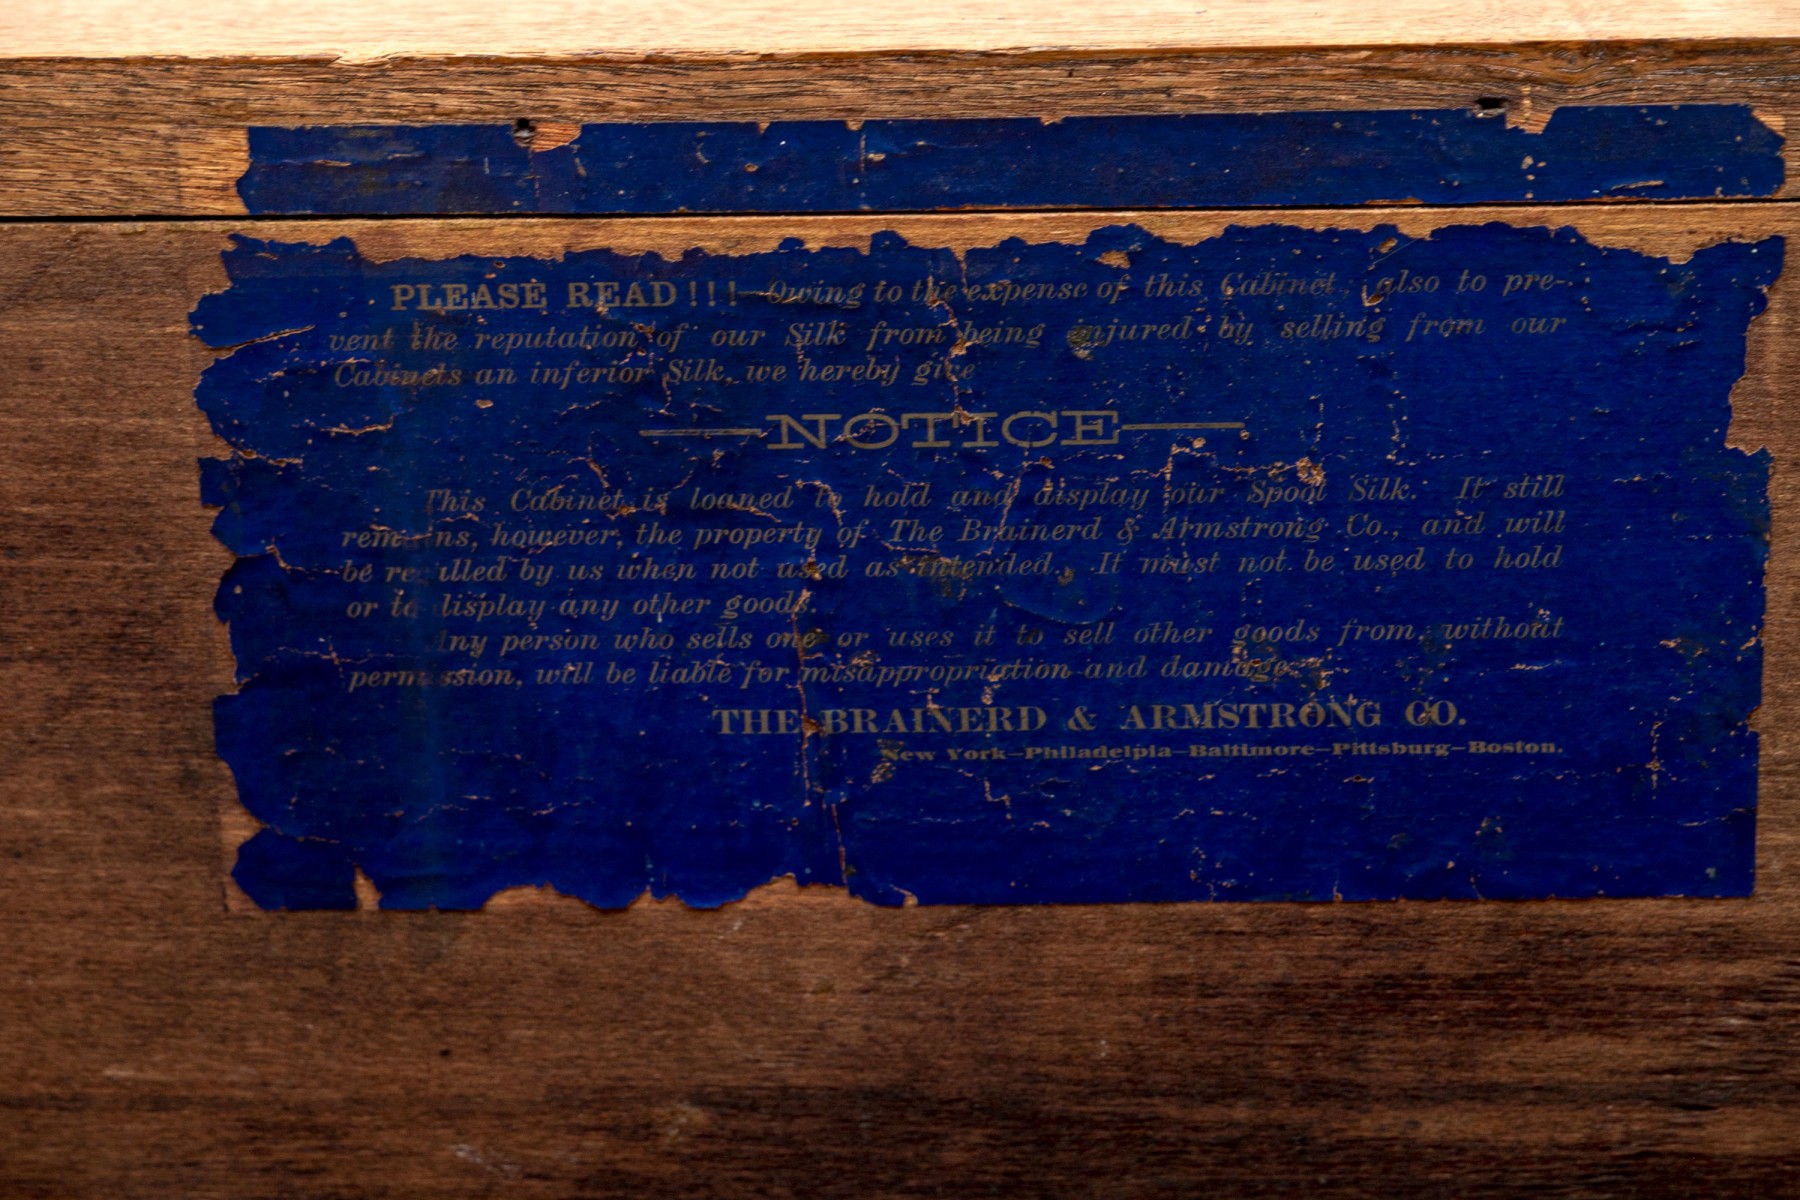 PLEASE READ!!!—Owing to the expense of this Cabinet, also to pre-
vent the reputation of our Silk from being injured by selling from our
Cabinets an inferior Silk, we hereby give
NOTICE
This Cabinet is loaned to hold and display our Spool Silk. It still
remains, however, the property of The Brainerd & Armstrong Co., and will
be recalled by us when not used as intended. It must not be used to hold
or to display any other goods.
Any person who sells one or uses it to sell other goods from, without
permission, will be liable for misappropriation and damage.
THE BRAINERD & ARMSTRONG CO.
New York—Philadelpia—Baltimore—Pittsburg—Boston.